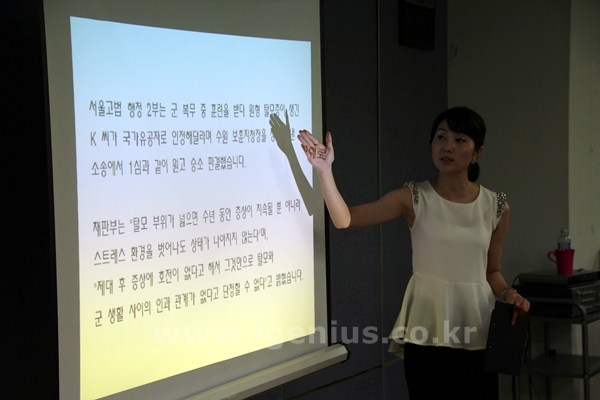 서울고법 행정 2부는 군 복무 중 훈련을 받다 원형 탈모증이 생긴
K 씨가 국가유공자로 인정해달라며 수원 보훈지청장을
소송에서 1심과 같이 원고 승소 판결했습니다.
재판부는 '탈모 부위가 넓으면 수년 동안 증상이 지속될 뿐 아니라
스트레스 환경을 벗어나도 상태가 나아지지 않는다'며,
"제대 후 증상에 호전이 없다고 해서 그것만으로 탈모와
군 생활 사이의 인과 관계가 없다고 단정할 수 없다"고 밝혔습니다.
www.igenius.co.kr